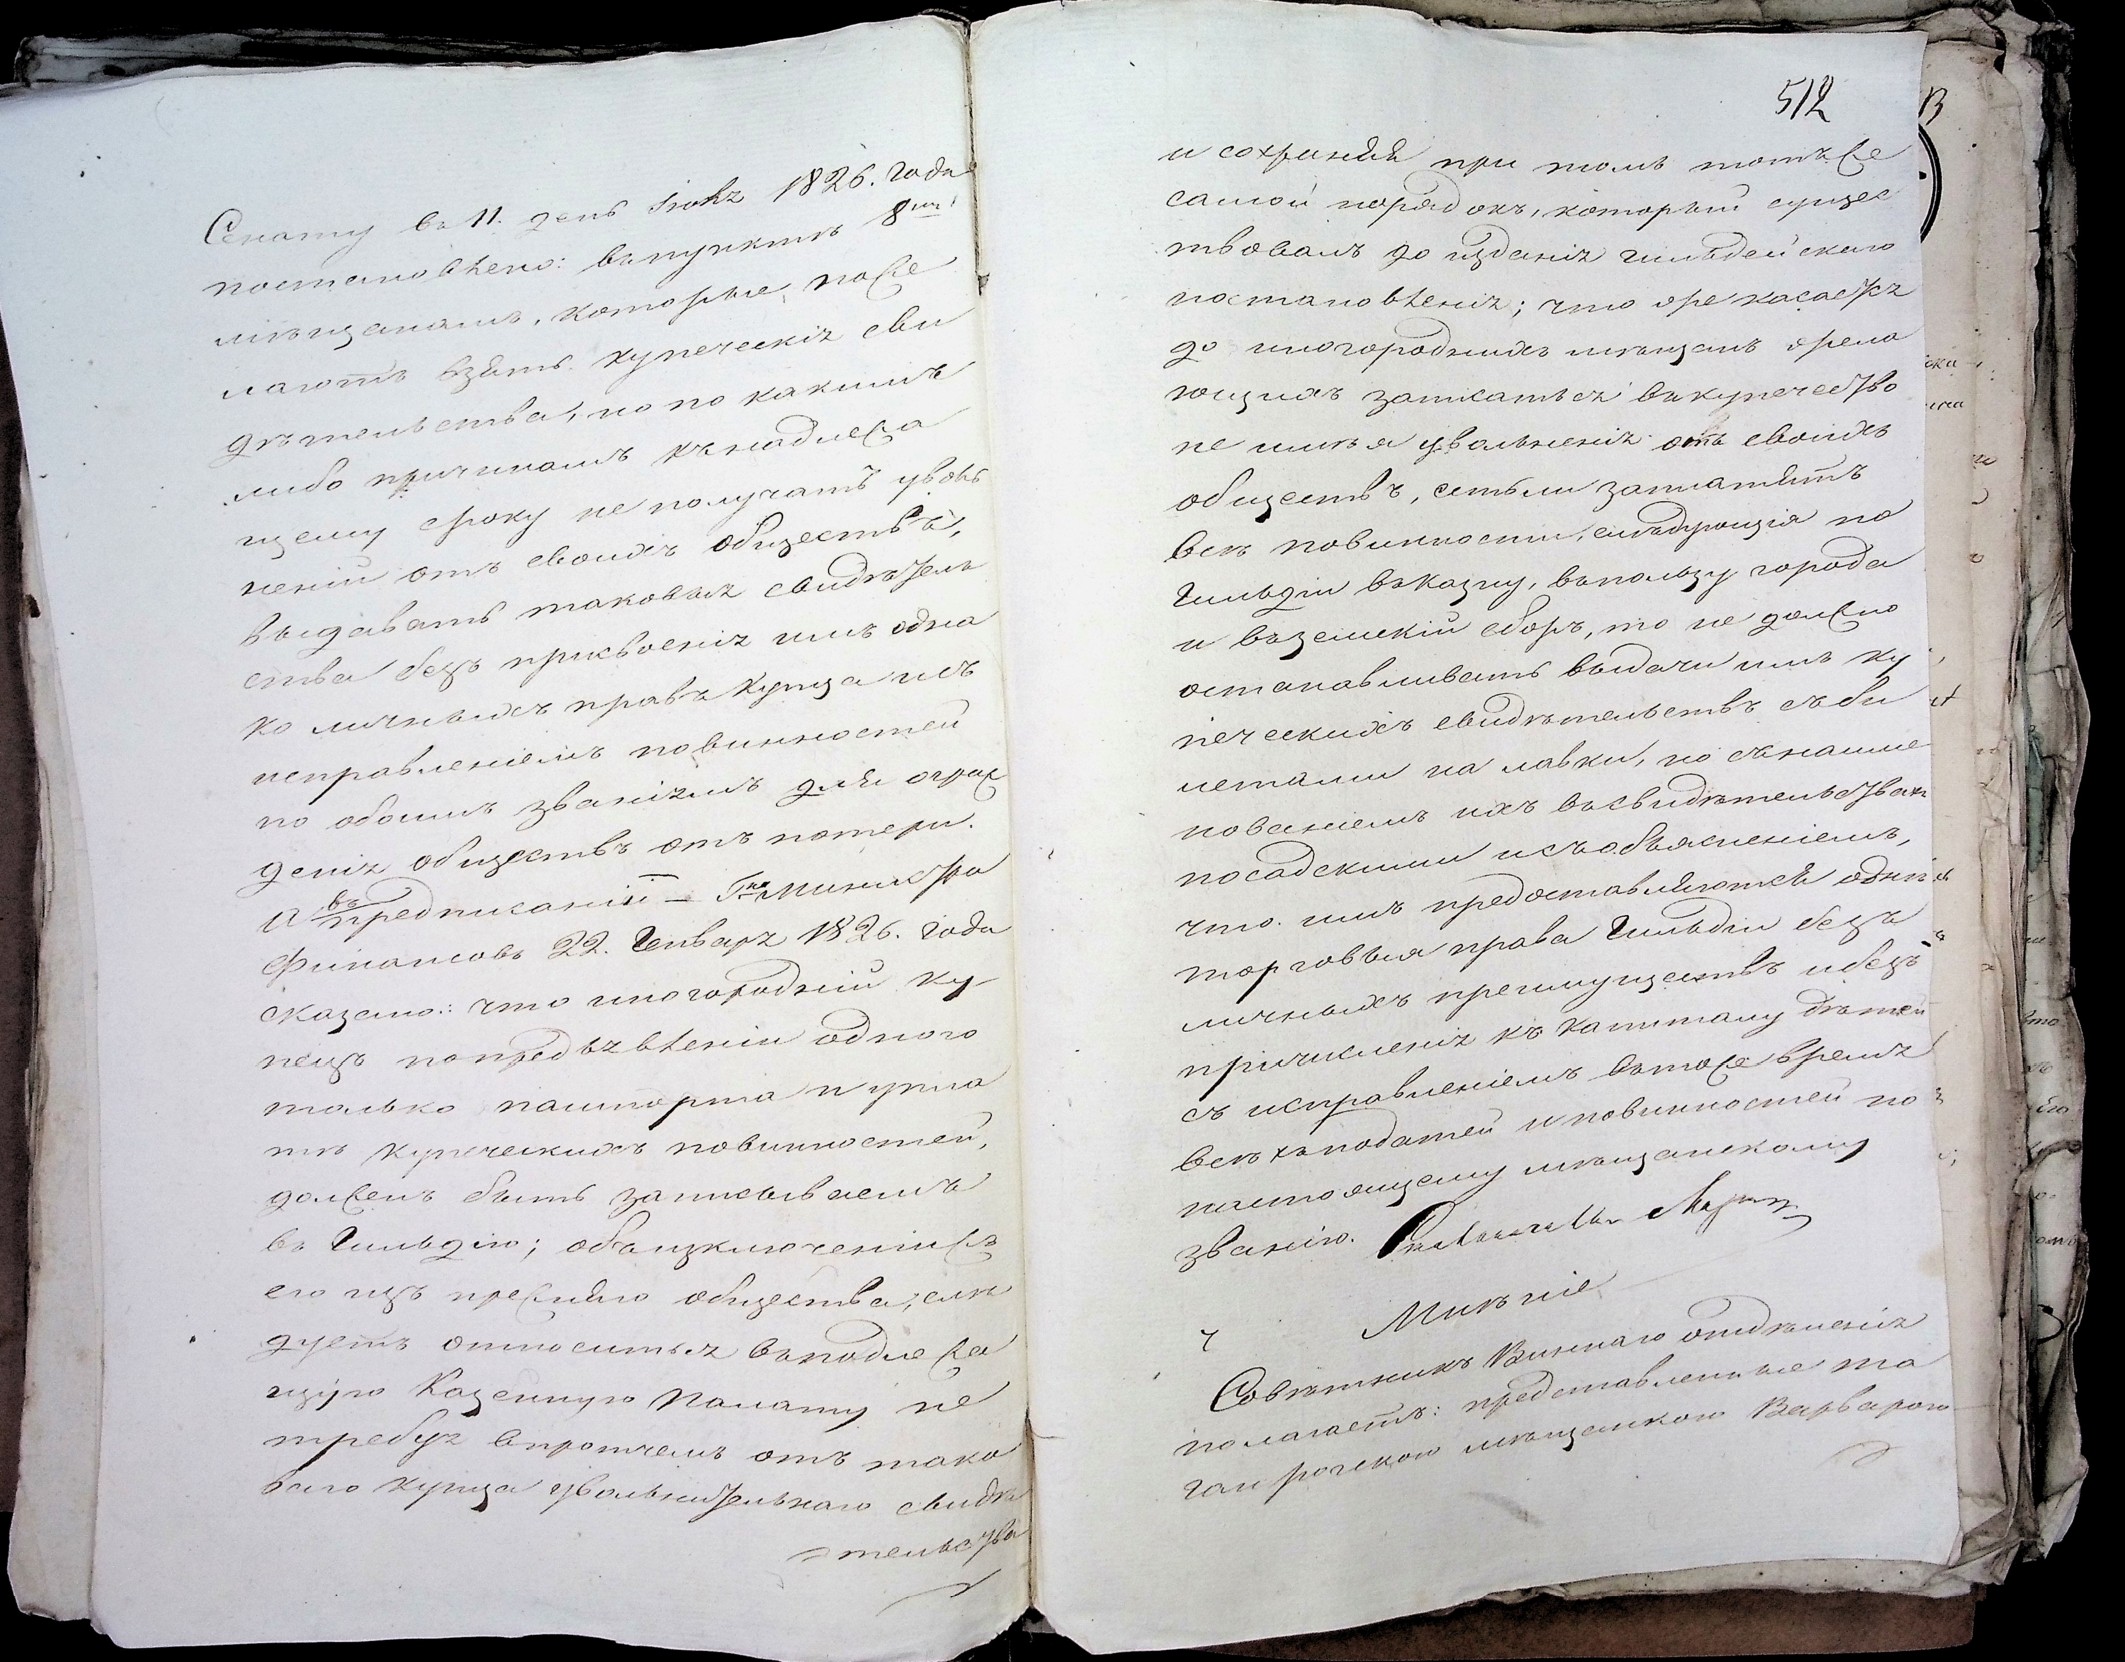 Сенату въ 11. день Іюня 1826. года
постановлено: въ пунктѣ 8мъ
мѣщанамъ, которые поже
лаютъ взять купеческія сви
дѣтельства, но по какимъ
либо причинамъ къ надлежа
щему сроку не получатъ уволь
неній отъ своихъ обществъ,
выдавать таковыя свидѣтель
ства безъ присвоенія имъ одна
ко личныхъ правъ купца и съ
исправленіемъ повинностей
по обоимъ званіямъ для ограж
денія обществъ отъ потери.
А въ предписаніи Гна Министра
Финансовъ 22. Генваря 1826. года
сказано: что иногородній ку-
пецъ по предъявленіи одного
только пашпорта и упла
тѣ купеческихъ повинностей,
долженъ быть записываемъ
въ Гильдію; объ изключеніи жъ
его изъ прежняго общества, слѣ
дуетъ относиться въ подлежа
щую Казенную Палату не
требуя впротчемъ отъ тако
ваго купца увольнительнаго свидѣ
тельства
512
и сохраняя при томъ тотъ же
самой порядокъ, который сущес
твовалъ до изданія гильдейскаго
постановленія; что же касается
до иногородныхъ мѣщанъ жела
ющихъ записаться въ купечество
не имѣя увольненія отъ своихъ
обществъ, естьли заплатятъ
всѣ повинности, слѣдующія по
Гильдіи въ казну, въ пользу города
и въ земскій сборъ, то не должно
останавливать выдачи имъ ку
печескихъ свидѣтельствъ съ би
летами на лавки, но съ наиме
нованіемъ ихъ въ свидѣтельствахъ
посадскими и съ объясненіемъ,
что имъ предоставляются однѣ
торговыя права Гильдіи безъ
личныхъ преимуществъ и безъ
причисленія къ капиталу дѣтей
съ исправленіемъ въ тоже время
всѣхъ податей и повинностей по
настоящему мѣщанскому
званію.
Мнѣніе
Совѣтникъ Виннаго отдѣленія
полагаетъ: представленные та
ганрогскою мѣщанкою Варварою